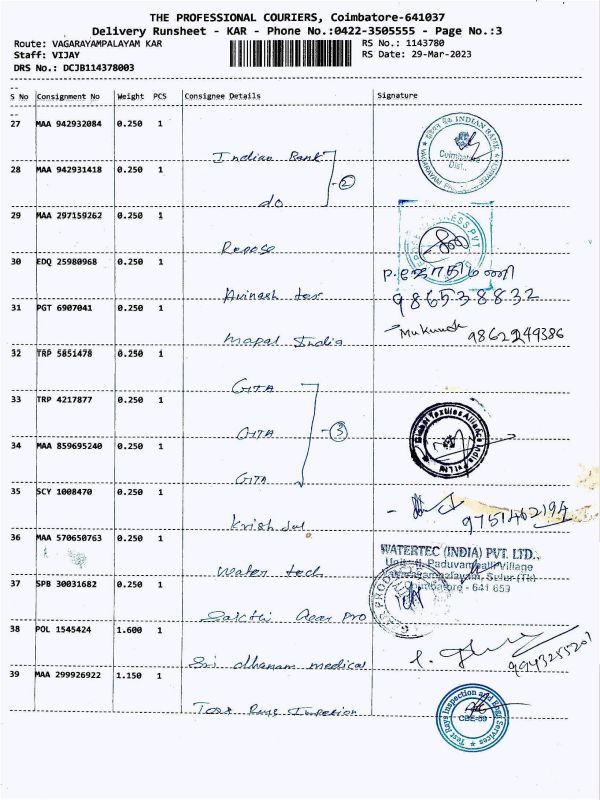 THE PROFESSIONAL COURIERS, Coimbatore-641037
Delivery Runsheet - KAR - Phone No.:0422-3505555 - Page No.:3
Route: VAGARAYAMPALAYAM KAR RS No.: 1143780
Staff: VIJAY RS Date: 29-Mar-2023
DRS No.: DCJB114378003
S No Consignment No Weight PCS Consignee Details Signature
27 MAA 942932084 0.250 1
Indian Bank
INDIAN BANK
Coimbatore
Dist.
28 MAA 942931418 0.250 1
do
2
29 MAA 297159262 0.250 1
Repose
30 EDQ 25980968 0.250 1
Avinash tex
9865388832
31 PGT 6907041 0.250 1
Mapal India
Mukund 9862249386
32 TRP 5851478 0.250 1
GITA
33 TRP 4217877 0.250 1
GITA
3
Global Textiles Alliance India Pvt Ltd
34 MAA 859695240 0.250 1
GITA
35 SCY 1008470 0.250 1
9751462194
36 MAA 570650763 0.250 1
Water tech
WATERTEC (INDIA) PVT. LTD.,
Unit-II, Paduvampalli Village
Sulur (Tk)
Coimbatore - 641 659
37 SPB 30031682 0.250 1
Sakthi Gear Pro
38 POL 1545424 1.600 1
Sri dhanam medical
9943255201
39 MAA 299926922 1.150 1
Test Rays Inspection and Engg Services
CBE-59